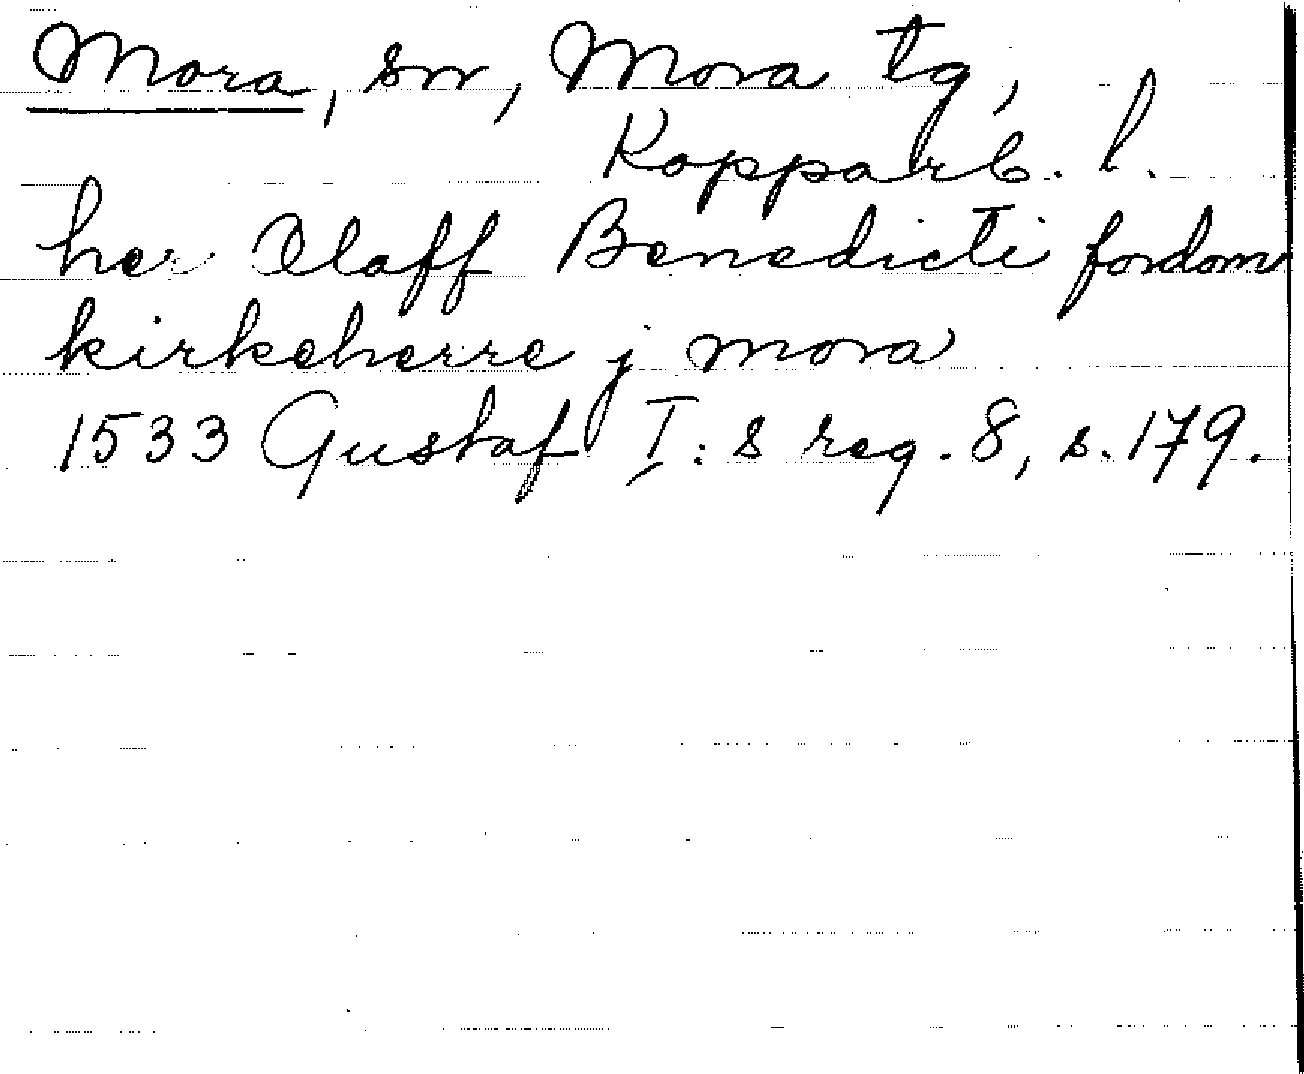 Mora, sn, Mora tg,
Kopparb. l.
her Olaff Benedicti fordom
kirkeherre j mora
1533 Gustaf I:s reg. 8, s. 179.